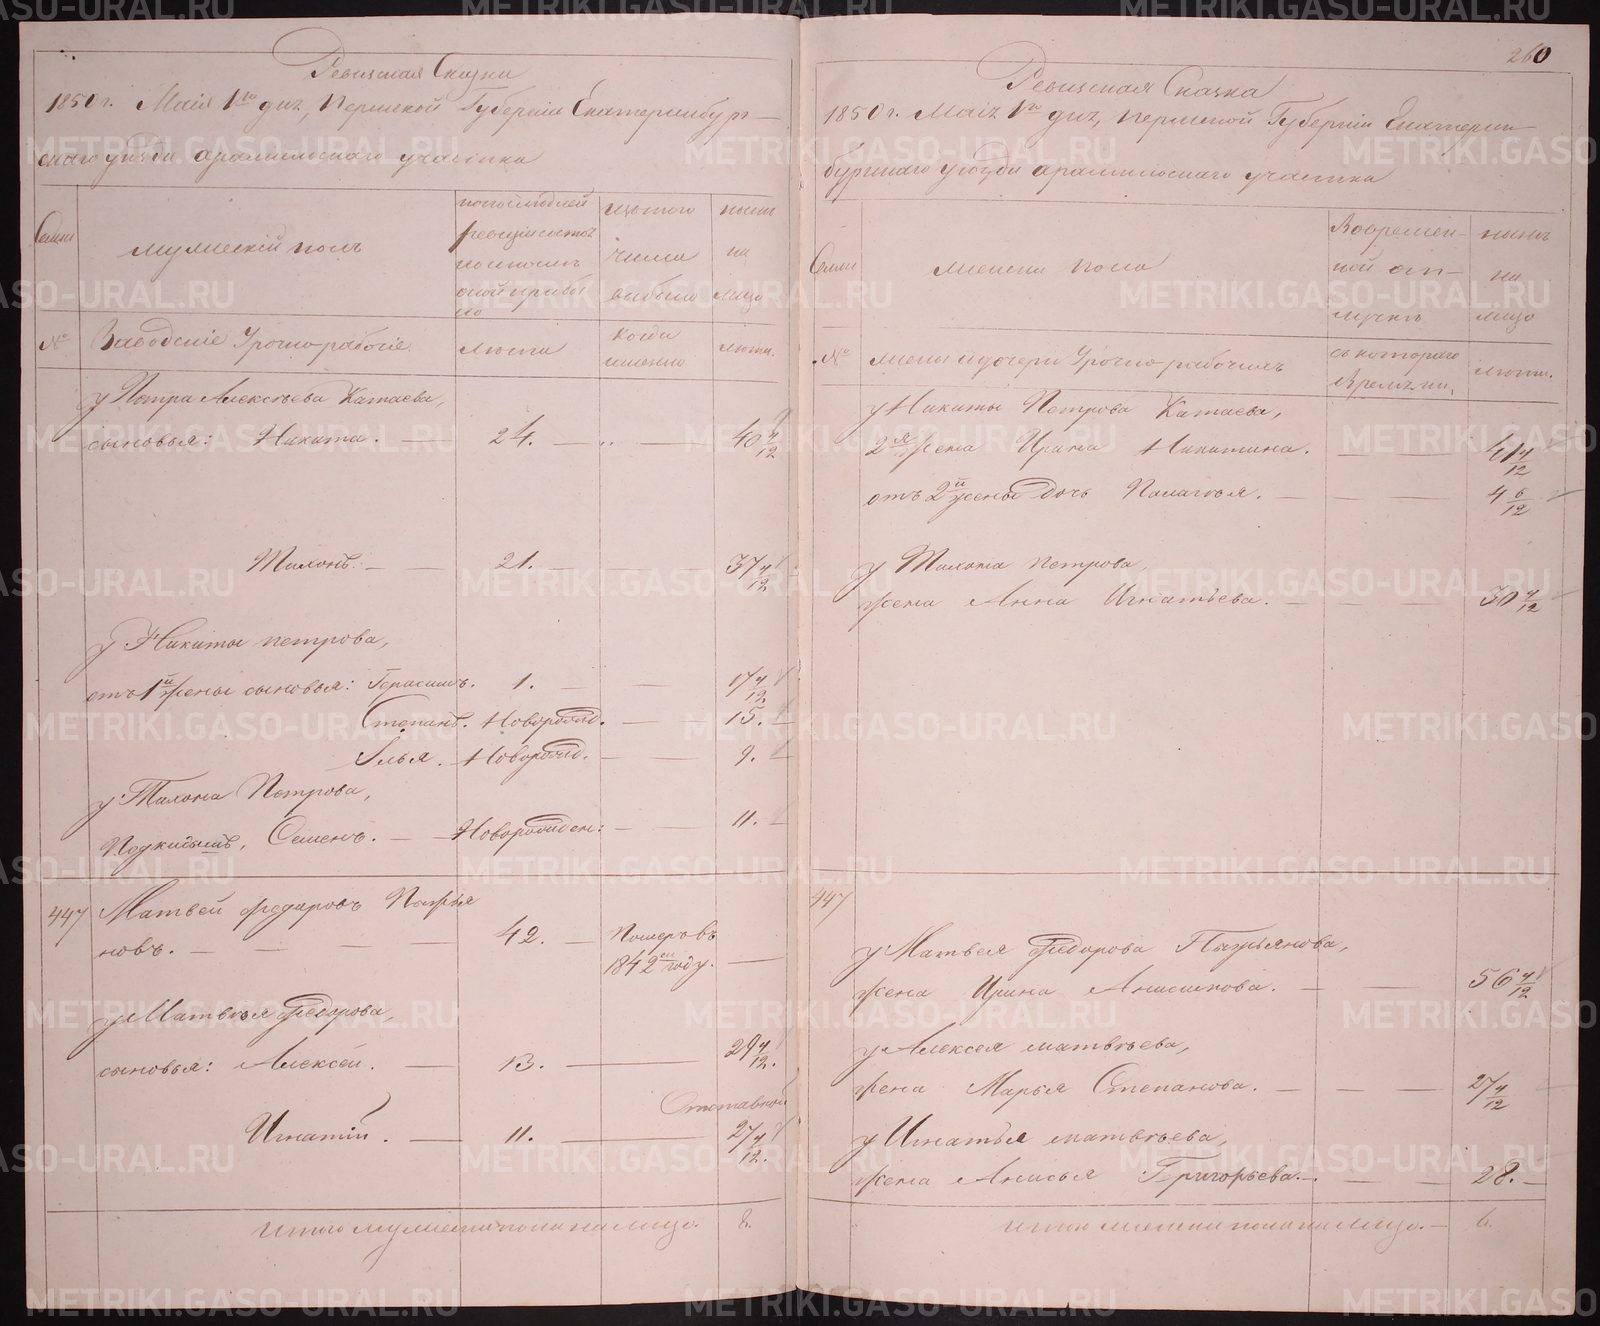 Ревизская Сказка
1850 г. Маія 1го дня, Пермской Губерніи Екатеринбург-
скаго уезда арамильскаго участка
Семьи
мужескій полъ
по последней
ревизіи состояло
изъ того
числа
выбыло
ныне
на
лицо
№
Заводскіе Урочнорабочіе.
лета
когда
именно
лета.
у Петра Алексѣева Катаева,
сыновья: Никита. — 24. — „ — 40 4/12
Тихонъ. — 21. — 37 4/12
у Никиты петрова,
отъ 1й жены сыновья: Герасимъ. 1. — 17 4/12
Степанъ. Новорожд. — 15. —
Илья. Новорожд. — 9. —
у Тихона Петрова,
Подкидышъ, Семенъ. — Новорожден: — 11. —
447 Матвей Федоровъ Пагрья
новъ. — 42. — Померъ въ
1842м году. —
у Матвѣя Федорова,
сыновья: Алексей. — 13. — 29 4/12.
Отставной
Игнатій. — 11. — 27 4/12.
Итого мужеска пола на лицо. 8.
260
Ревизская Сказка
1850 г. Маія 1го дня, Пермской Губерніи Екатерин-
бургскаго уѣзда арамильскаго участка
Семьи
женска пола
Во времен-
ной от-
лучке
нынѣ
на
лицо
№
жены и дочери Урочнорабочихъ
съ котораго
времени.
лета.
у Никиты Петрова Катаева,
2я жена Ирина Никитина. — 41 4/12
отъ 2й жены дочь Палагѣя. — 4 6/12
у Тихона петрова,
жена Анна Игнатьева. — 30 4/12
447
у Матвея Федорова Пагрьянова,
жена Ирина Анисимова. — 56 4/12
у Алексея матвѣева,
жена Марья Степанова. — 27 4/12
у Игнатья матвѣева,
жена Анисья Григорьева. — 28. —
Итого женска пола на лицо. — 6.
METRIKI.GASO-URAL.RU